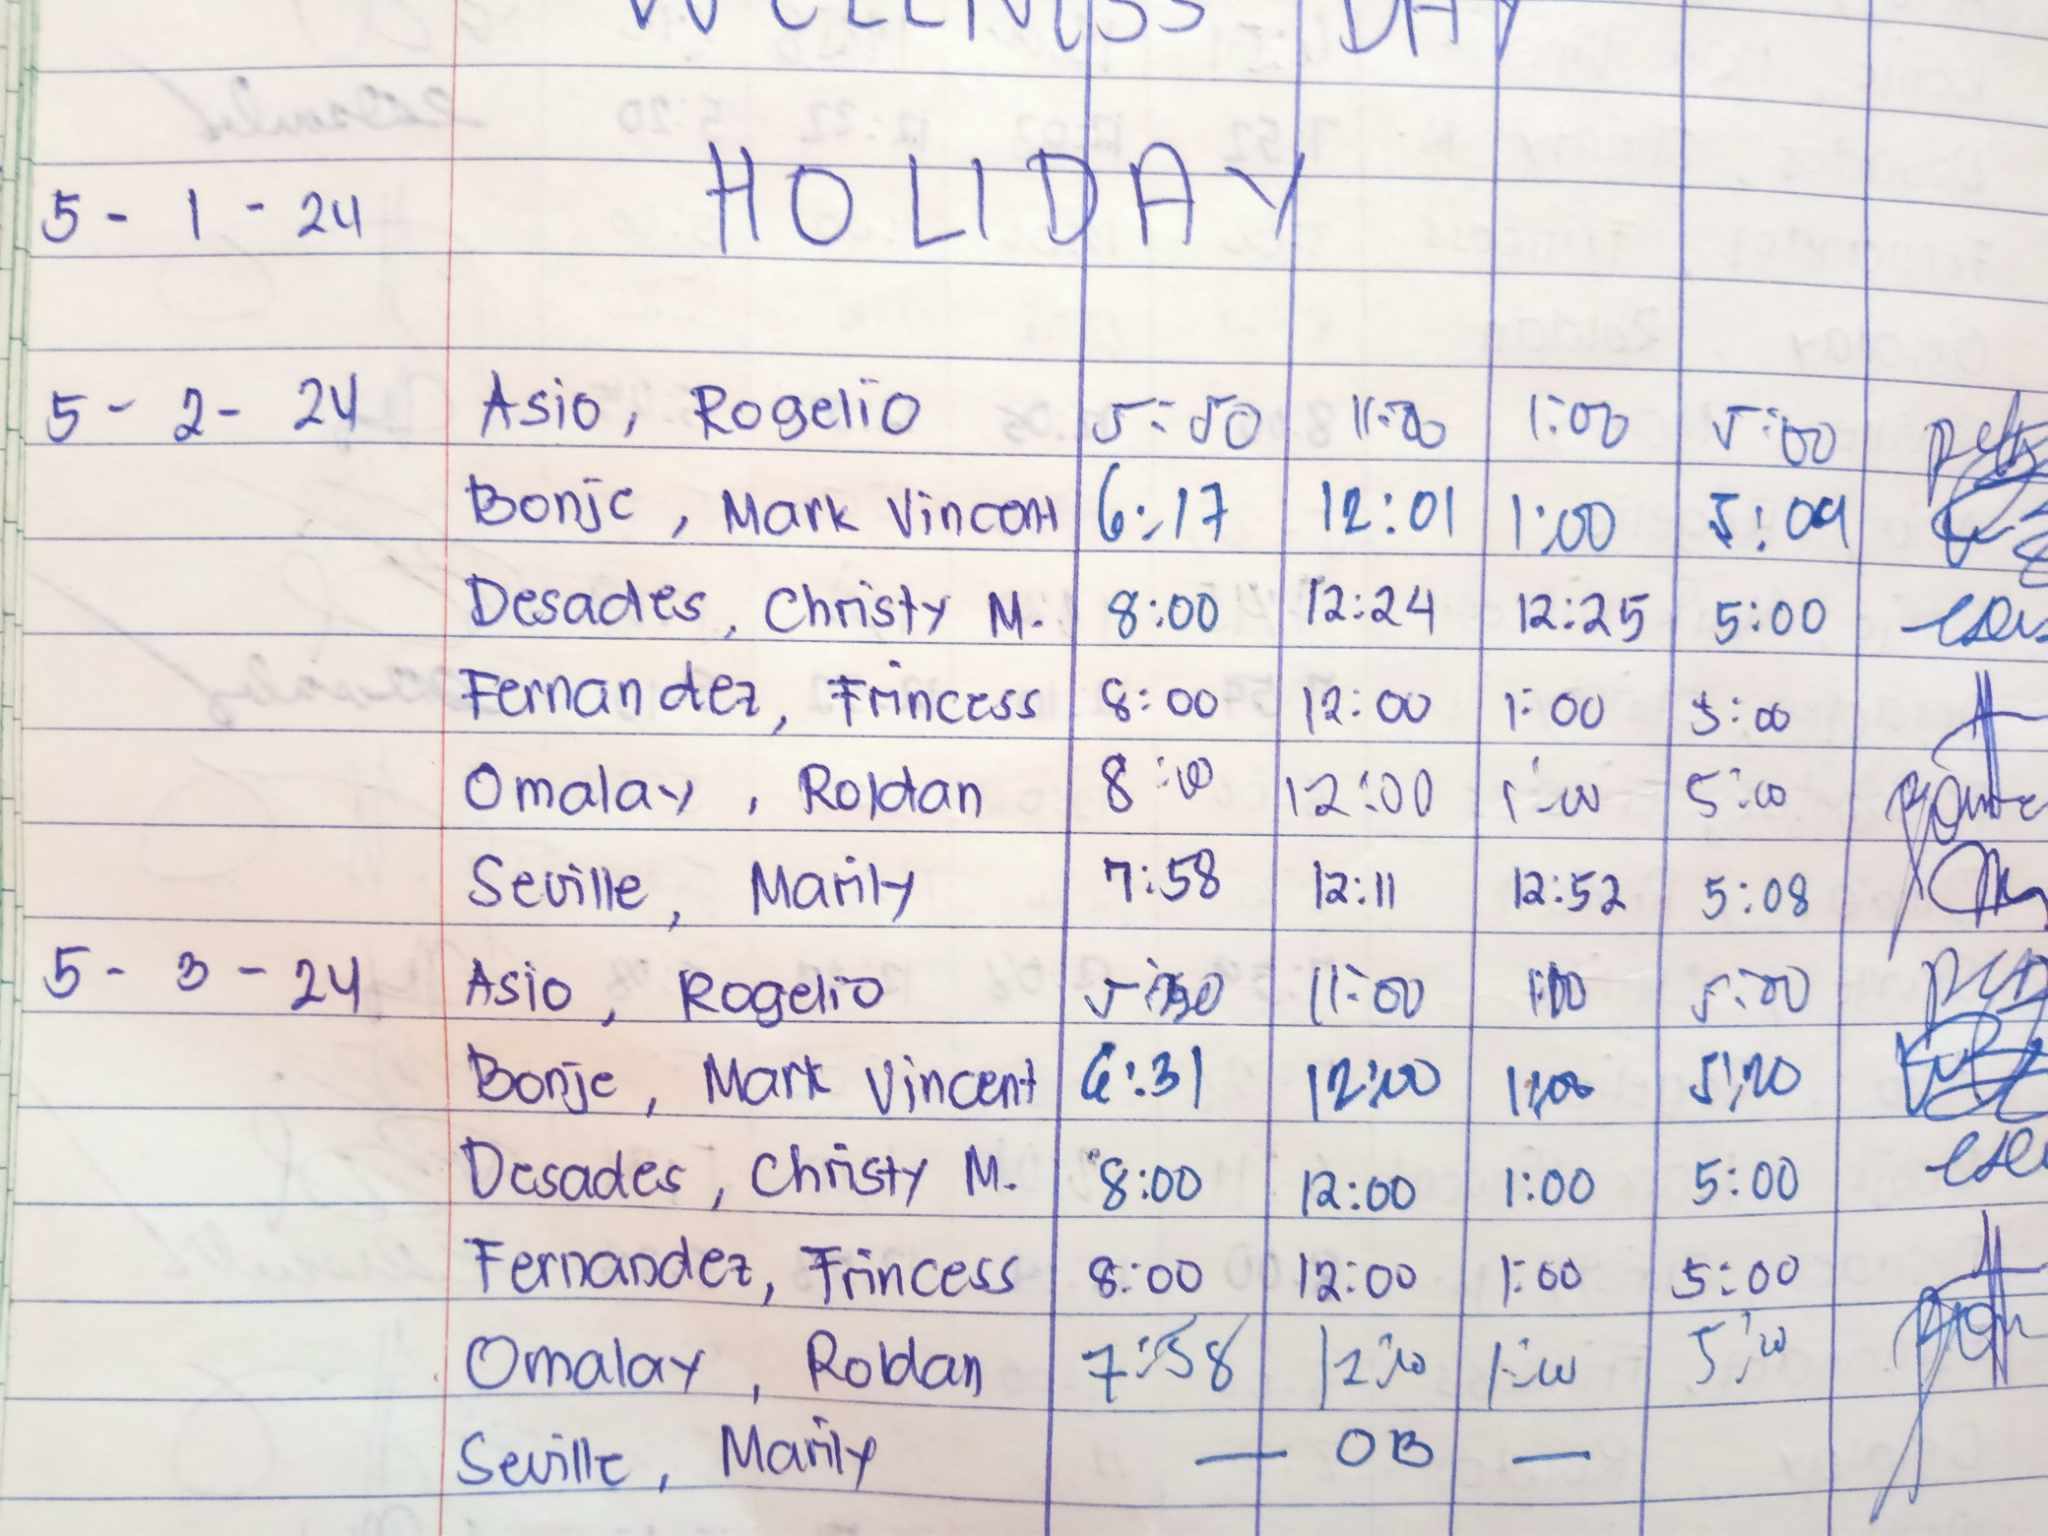 WELLNESS DAY
5 - 1 - 24 HOLIDAY
5 - 2 - 24 Asio, Rogelio 5:50 11:00 1:00 5:00
Bonje, Mark Vincent 6:17 12:01 1:00 5:04
Desades, Christy M. 8:00 12:24 12:25 5:00
Fernandez, Frincess 8:00 12:00 1:00 5:00
Omalay, Roldan 8:00 12:00 1:00 5:00
Seville, Marily 7:58 12:11 12:52 5:08
5 - 3 - 24 Asio, Rogelio 11:00 1:00 5:00
Bonje, Mark Vincent 6:31 12:00 1:00 5:20
Desades, Christy M. 8:00 12:00 1:00 5:00
Fernandez, Frincess 8:00 12:00 1:00 5:00
Omalay, Roldan 7:58 12:00 1:00 5:00
Seville, Marily — OB —